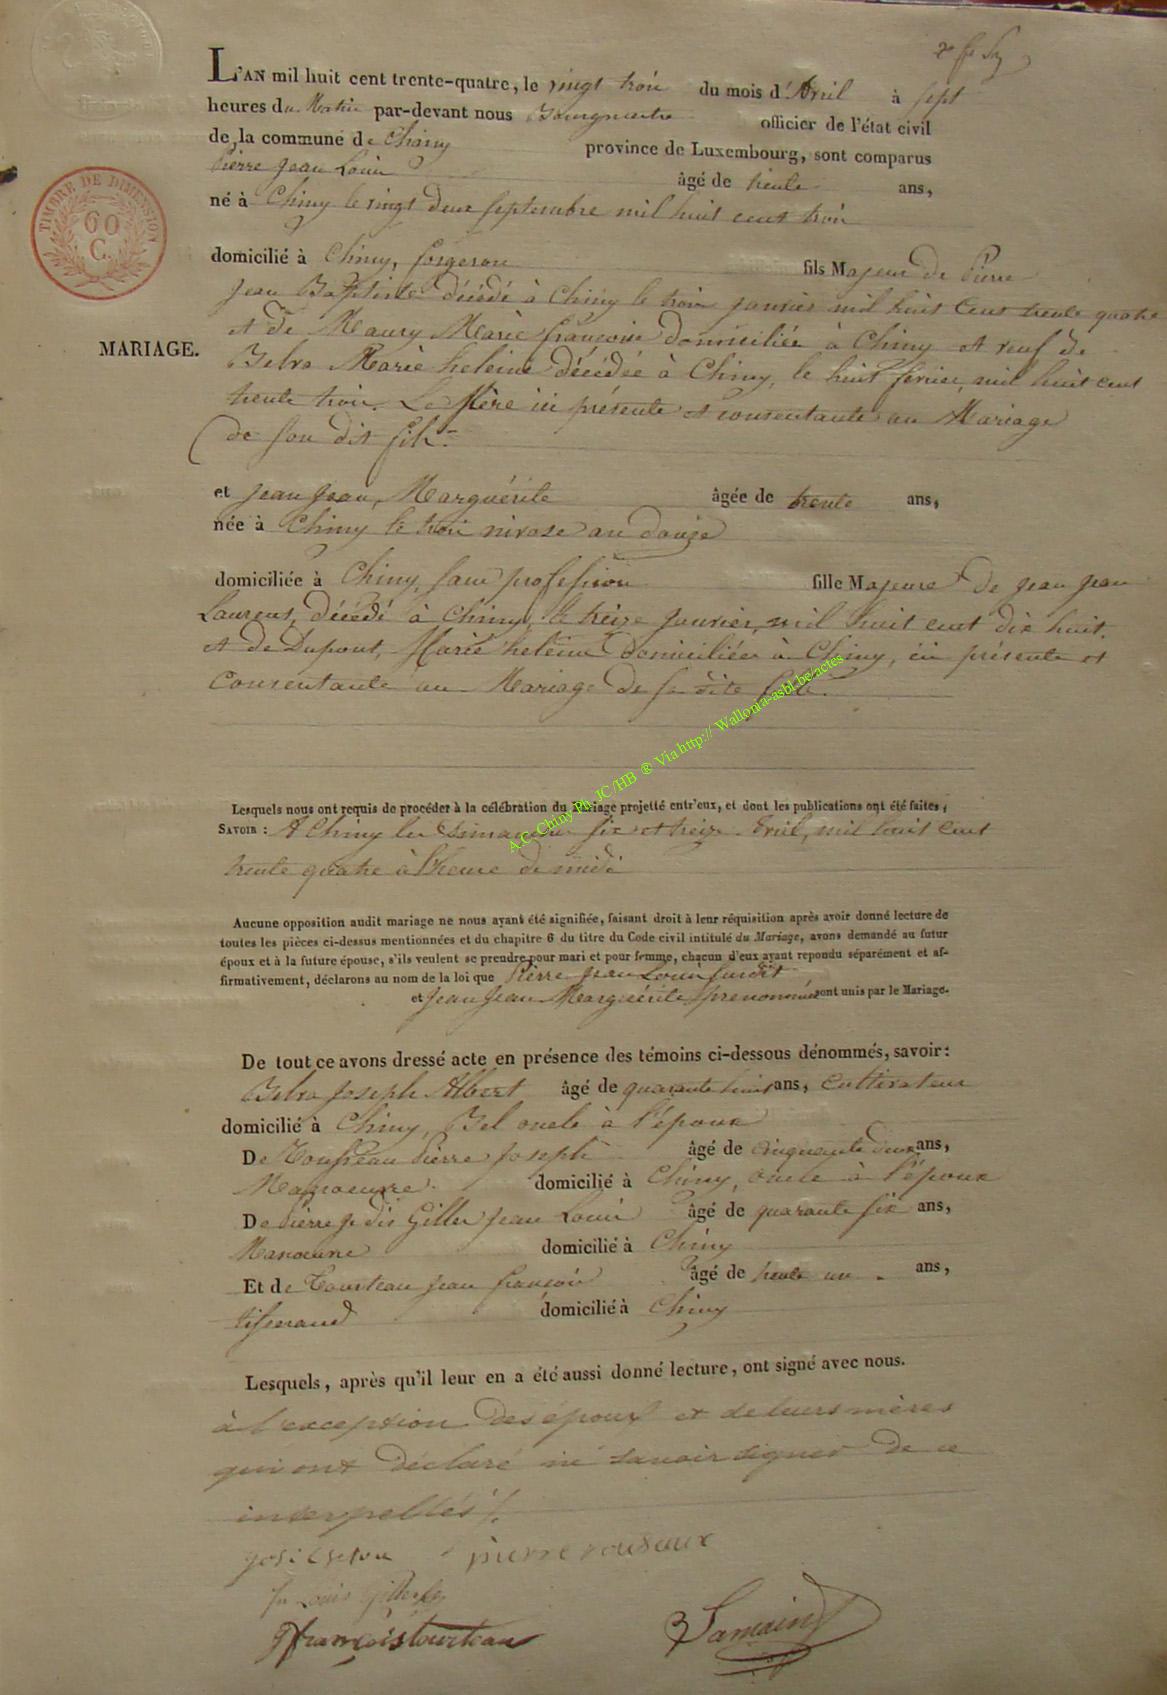 L'AN mil huit cent trente-quatre, le vingt troi du mois d'Avril à sept
heures du Matin par-devant nous Bourgmestre officier de l'état civil
de la commune de Chiny province de Luxembourg, sont comparus
Pierre Jean Louis âgé de trente ans,
né à Chiny le vingt deux septembre mil huit cent troi
TIMBRE DE DIMENSION
60
C.
domicilié à Chiny, forgeron fils Majeur de Pierre
Jean Baptiste décédé à Chiny le troi janvier mil huit cent trente quatre
et de Maury Marie françoise domiciliée à Chiny et veuf de
MARIAGE.
Marie heleine décédée à Chiny, le huit fevrier, mil huit cent
trente troi. La Mère ici présente et consentante au Mariage
de son dit fils.
et Jean Jean, Marguérite âgée de trente ans,
née à Chiny le troi nivose an douze
domiciliée à Chiny, sans profession fille Majeure de Jean Jean
Laurent, décédé à Chiny, le treize janvier, mil huit cent dix huit.
et de Dupont, Marie heleine domiciliée à Chiny, ici présente et
consentante au Mariage de sa dite fille.
A.C. Chiny Ph. JC/HB ® Via http:// Wallonia-asbl.be/actes
Lesquels nous ont requis de procéder à la célébration du Mariage projetté entr'eux, et dont les publications ont été faites,
SAVOIR : A Chiny les Dimanches six et treize Avril, mil huit cent
trente quatre à l'heure de midi
Aucune opposition audit mariage ne nous ayant été signifiée, faisant droit à leur réquisition après avoir donné lecture de
toutes les pièces ci-dessus mentionnées et du chapitre 6 du titre du Code civil intitulé du Mariage, avons demandé au futur
époux et à la future épouse, s'ils veulent se prendre pour mari et pour femme, chacun d'eux ayant repondu séparément et af-
firmativement, déclarons au nom de la loi que Pierre Jean Louis susdit
et Jean Jean Marguérite prenommés sont unis par le Mariage.
De tout ce avons dressé acte en présence des témoins ci-dessous dénommés, savoir:
Joseph Albert âgé de quarante huit ans, Cultivateur
domicilié à Chiny, Bel oncle à l'époux
De Pierre Joseph âgé de cinquante deux ans,
Manoeuvre. domicilié à Chiny, oncle à l'époux
De Pierre je dis Gillet Jean Louis âgé de quarante six ans,
Manoeuvre domicilié à Chiny
Et de Tourteau Jean françois âgé de trente un ans,
tisserand domicilié à Chiny
Lesquels, après qu'il leur en a été aussi donné lecture, ont signé avec nous.
à l'exception des époux et de leurs mères
qui ont déclaré ne savoir signer de ce
interpellés
pierre rouseaux
Louis
françois tourteau
Samain